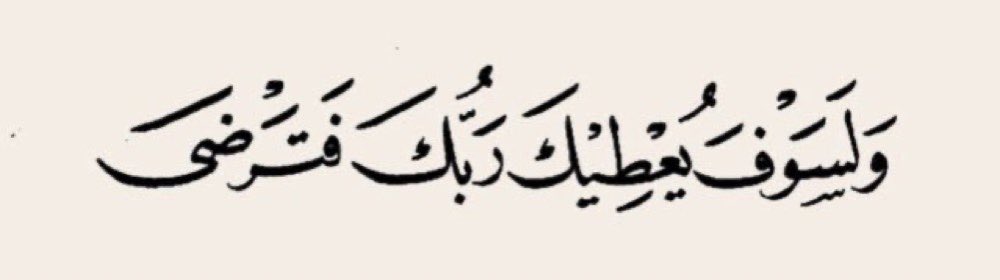 وَلَسَوْفَ يُعْطِيْكَ رَبُّكَ فَتَرْضَى